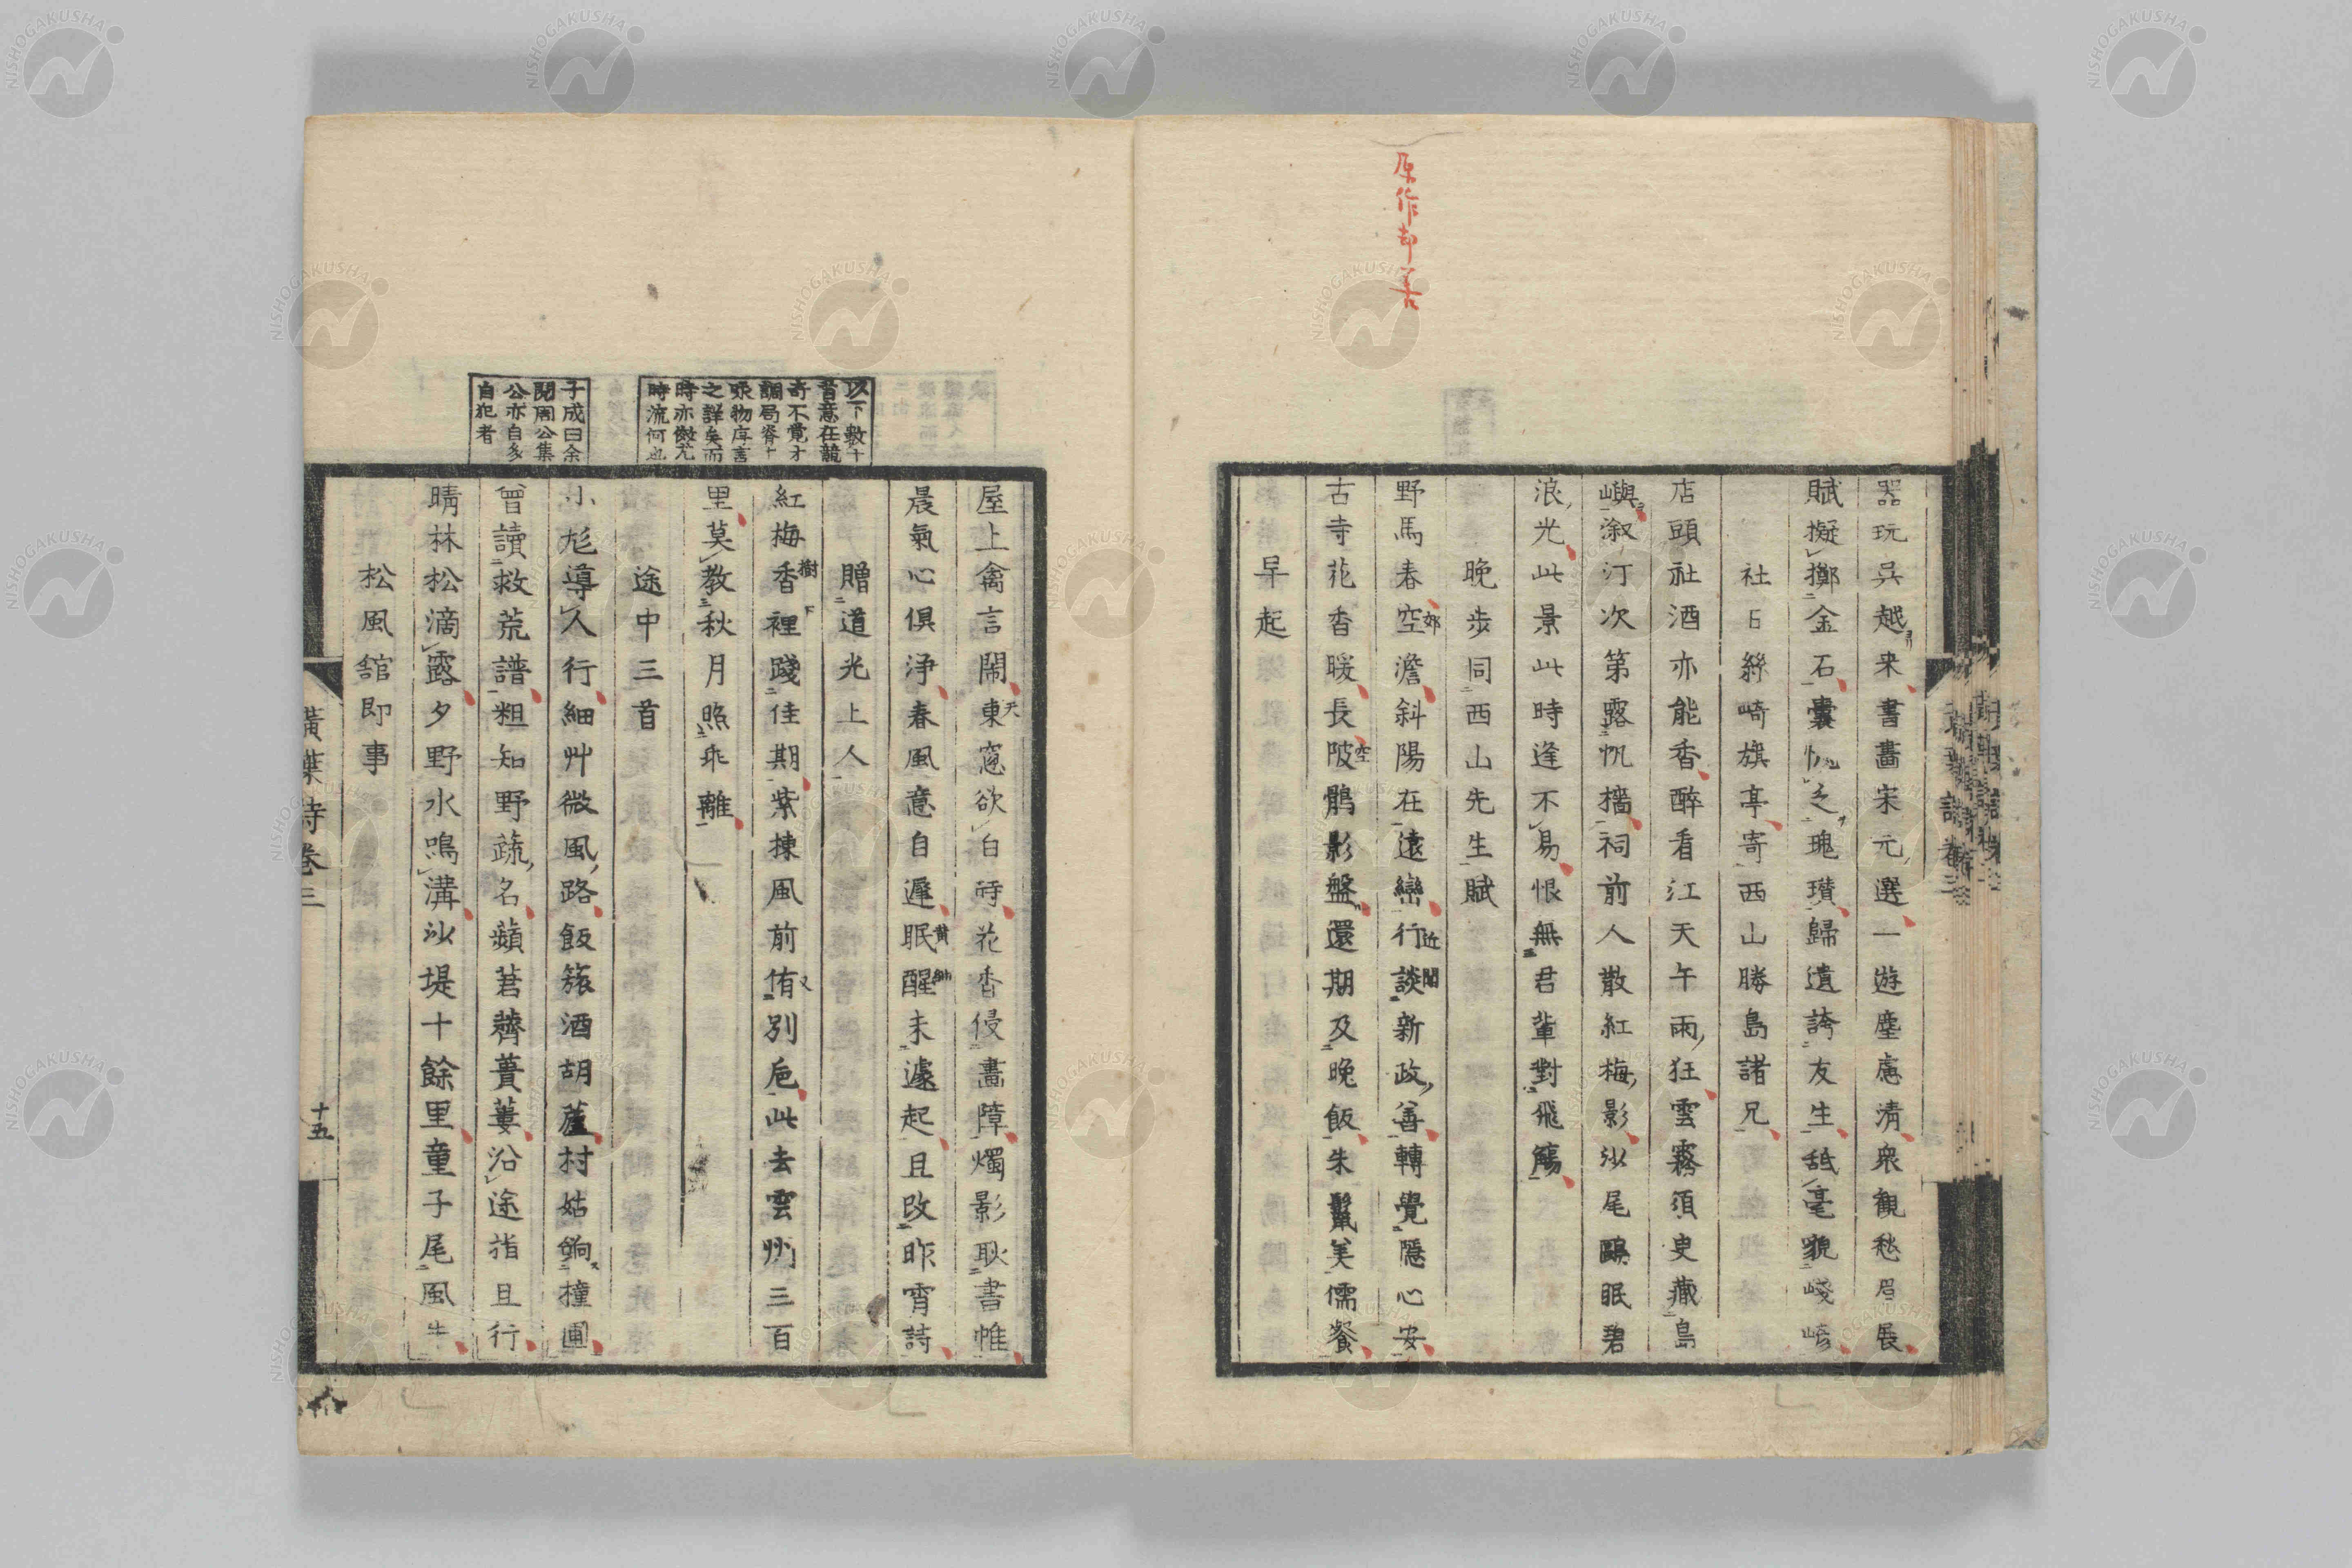 原作却善
器玩呉越来書畫宋元選一遊塵慮清衆観愁眉展
賦擬擲金石囊忱乏瑰瓉歸遺誇友生舐毫貌崚嶒
社日絲崎旗亭寄西山勝島諸兄
店頭社酒亦能香醉看江天午雨狂雲霧須臾藏島
嶼溆汀次第露帆檣祠前人散紅梅影沙尾鷗眠碧
浪光此景此時逢不易恨無君輩對飛觴
晩歩同西山先生賦
野馬春空澹斜陽在遠巒行談新政善轉覺隱心安
郊
近聞
古寺花香暖長陂鶻影盤還期及晩飯朱鬣美儒餐
空
早起
屋上禽言閙東窓欲白時花香侵畵障燭影耿書帷
天
晨氣心倶浄春風意自遲眠醒未遽起且改昨宵詩
贈道光上人
紅梅香裡踐佳期紫楝風前侑別巵此去雲州三百
樹下
又
里莫教秋月照乖離
途中三首
小尨導人行細艸微風路飯簇酒胡蘆村姑餉撞圃
曾讀救荒譜粗知野蔬名蘋莙薺蕢蔞沿途指且行
晴林松滴露夕野水鳴溝沙堤十餘里童子尾風牛
松風舘即事
以下數十
首意在競
奇不覺才
調局脊十
張物序言
之詳矣而
時亦傚尤
時流何也
子成曰余
閱周公集
公亦自多
自犯者
黄葉詩巻三
十五